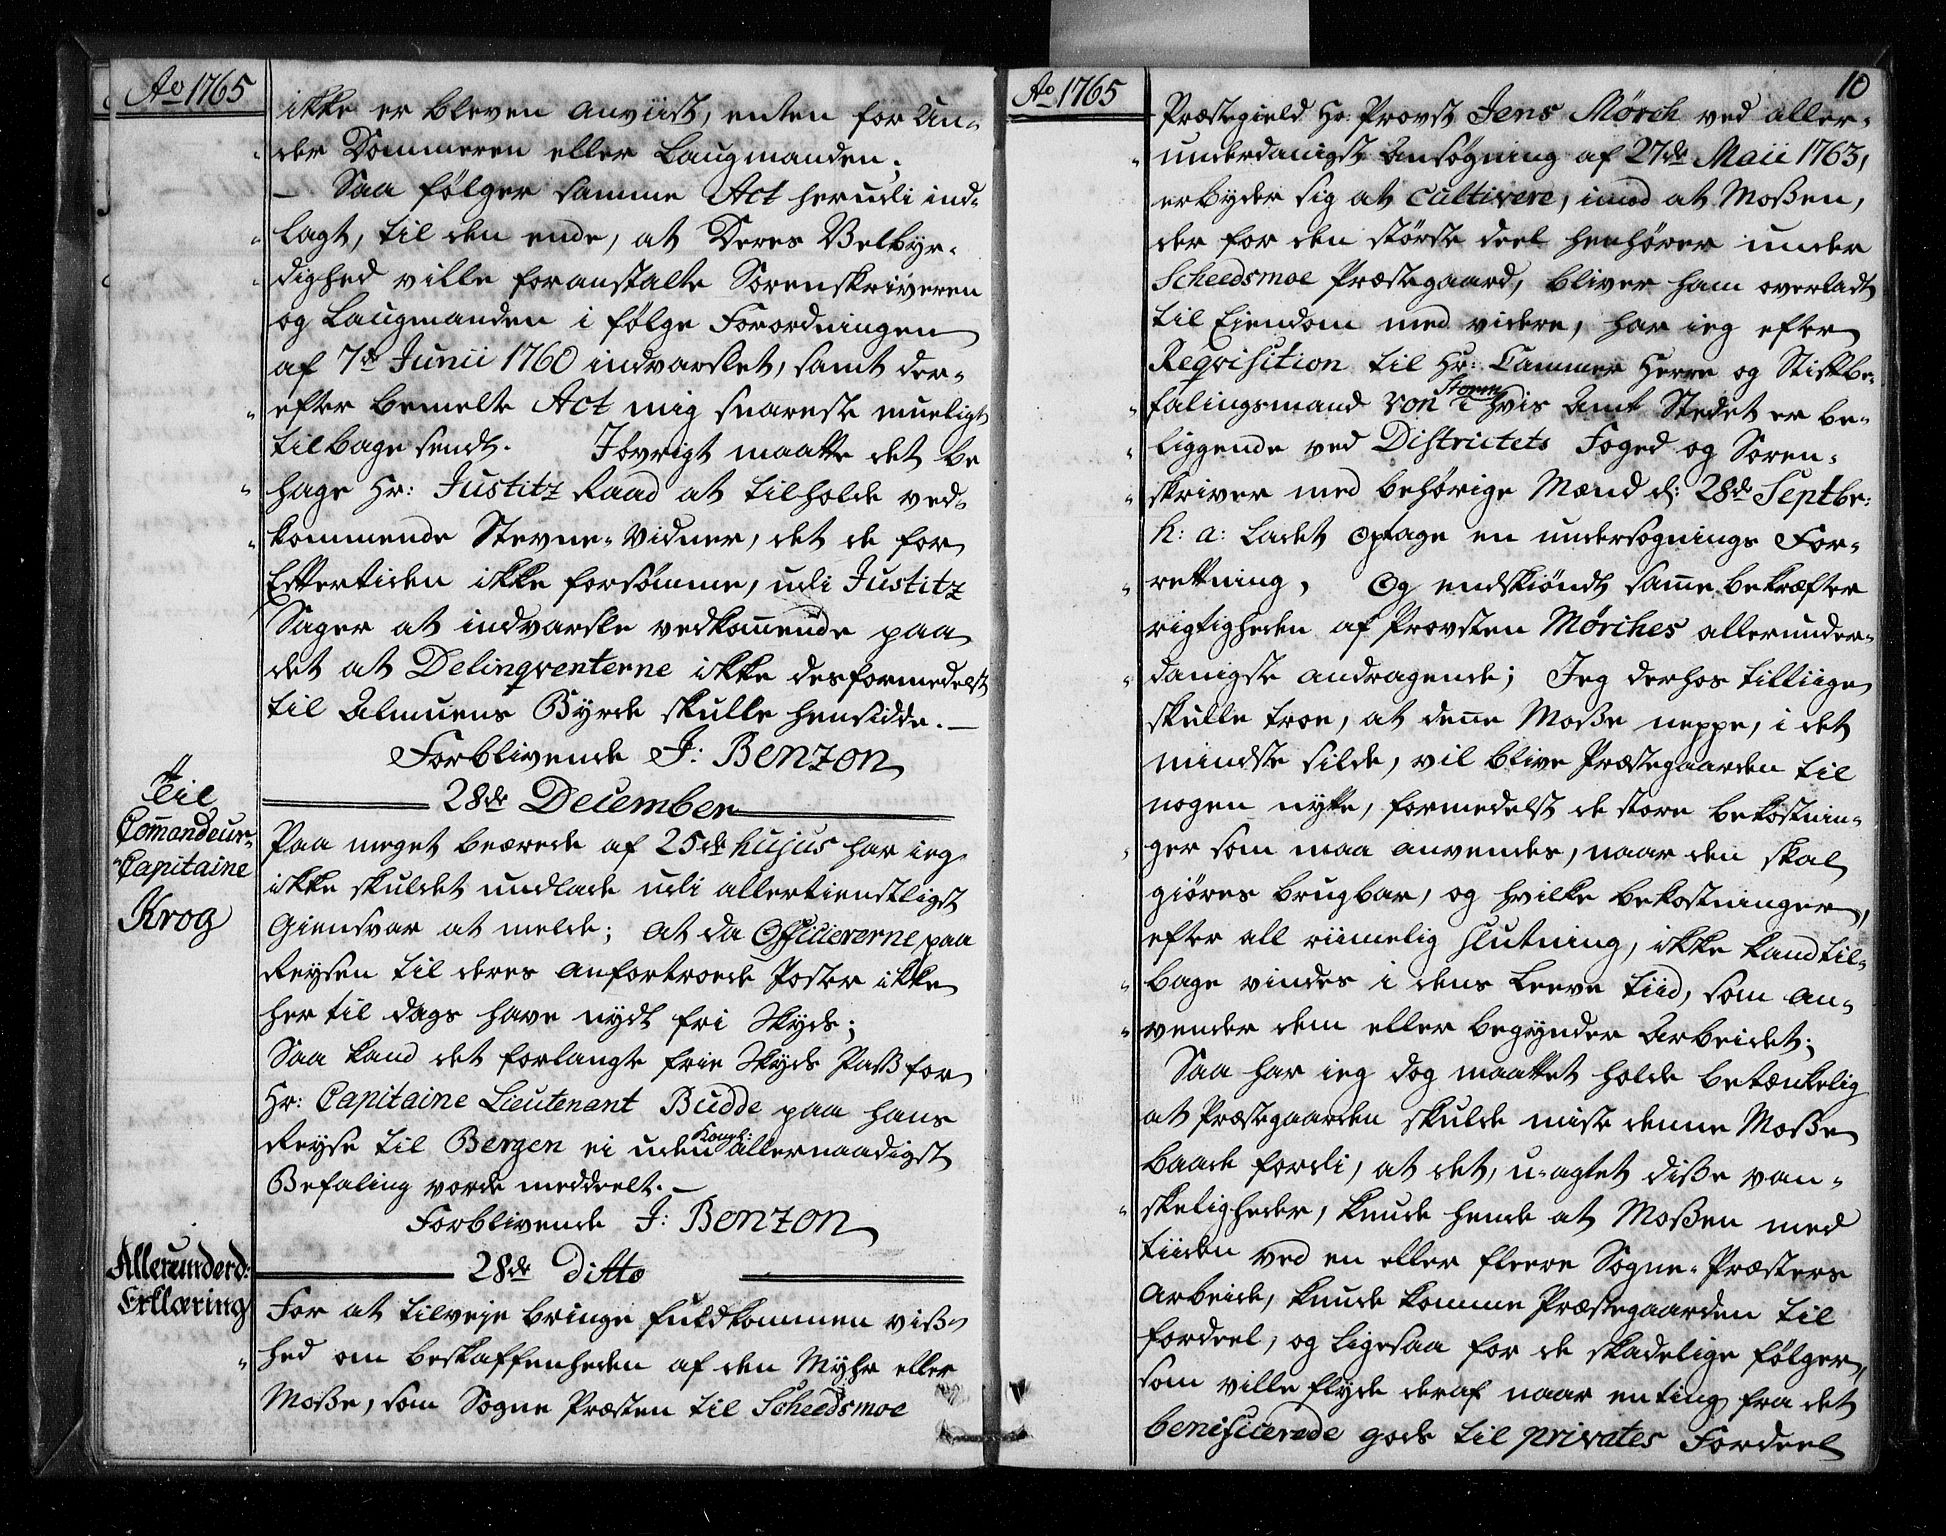 Ao 1765
ikke er bleven anviist, enten for Un-
der Dommeren eller Laugmanden;
- Saa følger samme Act herudi ind-
lagt, til den ende, at Deres Velbyr-
dighed ville foranstalte Sorenskriveren
og Laugmanden i følge Forordningen
af 7de Junii 1760 indvarslet, samt der-
efter bemelte Act mig snareste mueligt
tilbage sendt. Jøvrigt maatte det be
hage Hr: Justitz Raad at tilholde ved-
kommende Stevne-Vidner, det de for
Eftertiden ikke forsømme, udi Justitz
Sager at indvarsle vedkom̄ende paa
det at Delinqventerne ikke desformedelst
til Almuens Byrde skulle hensidde. -
Forblivende J: Benzon
28de December
Til
Com̄andeur-
Capitaine
Krog
Paa meget beærede af 25de hujus har ieg
ikke skuldet undlade udi allertienstligst
Giensvar at melde; at da Officiererne paa
Reysen til deres anfortroede Poster ikke
her til dags have nydt fri Skyds;
Saa kand det forlangte frie Skyds Pass for
Hr: Capitaine Lieutenant Budde paa hans
Reyse til Bergen ei uden Kongl: allernaadigst
Befaling vorde meddeelt. -
Forblivende J: Benzon
28de Ditto
Allerunderd:
Erklæring
For at tilveje bringe fuldkommen viß-
hed om beskaffenheden af den Myhr eller
Moße, som Sogne Præsten til Scheedsmoe
Ao 1765
10
Præstegield Hr: Provst Jens Mørch ved aller-
underdanigst Ansøgning af 27de Maii 1763,
erbyder sig at cultivere, imod at Moßen,
der for den største deel henhører under
Scheedsmoe Præstegaard, bliver ham overladt
til Ejendom med videre, har ieg efter
Reqvisition til Hr: Cammer Herre og Stiftbe-
falingsmand von Storm i hvis Amt Stedet er be-
liggende ved Districtets Foged og Soren-
skriver med behørige Mænd d: 28de Septbr:
h: a: ladet optage en undersøgnings For-
retning, Og endskiøndt sam̄e bekræfter
rigtigheden af Provsten Mørches allerunder-
danigste andragende; Jeg derhos tilliige
skulle troe, at den̄e Moße neppe, i det
mindste silde, vil blive Præstegaarden til
nogen nytte, formedelst de store bekostnin-
ger som maa anvendes, naar den skal
giøres brugbar, og hvilke bekostninger,
efter all riimelig slutning, ikke kand til-
bage vindes i dens Leeve tiid, som an-
vender dem eller begynder Arbeidet;
Saa har ieg dog maattet holde betænkelig
at Præstegaarden skulde miste denne Moße
baade fordi, at det, u-agtet diße van-
skeligheder, kunde hende at Moßen med
tiiden ved en eller fleere Sogne-Præsters
Arbeide, kunde komme Præstegaarden til
fordeel, og ligesaa for de skadelige følger,
som ville flyde deraf naar en ting fra det
beneficerede gods til privates Fordeel